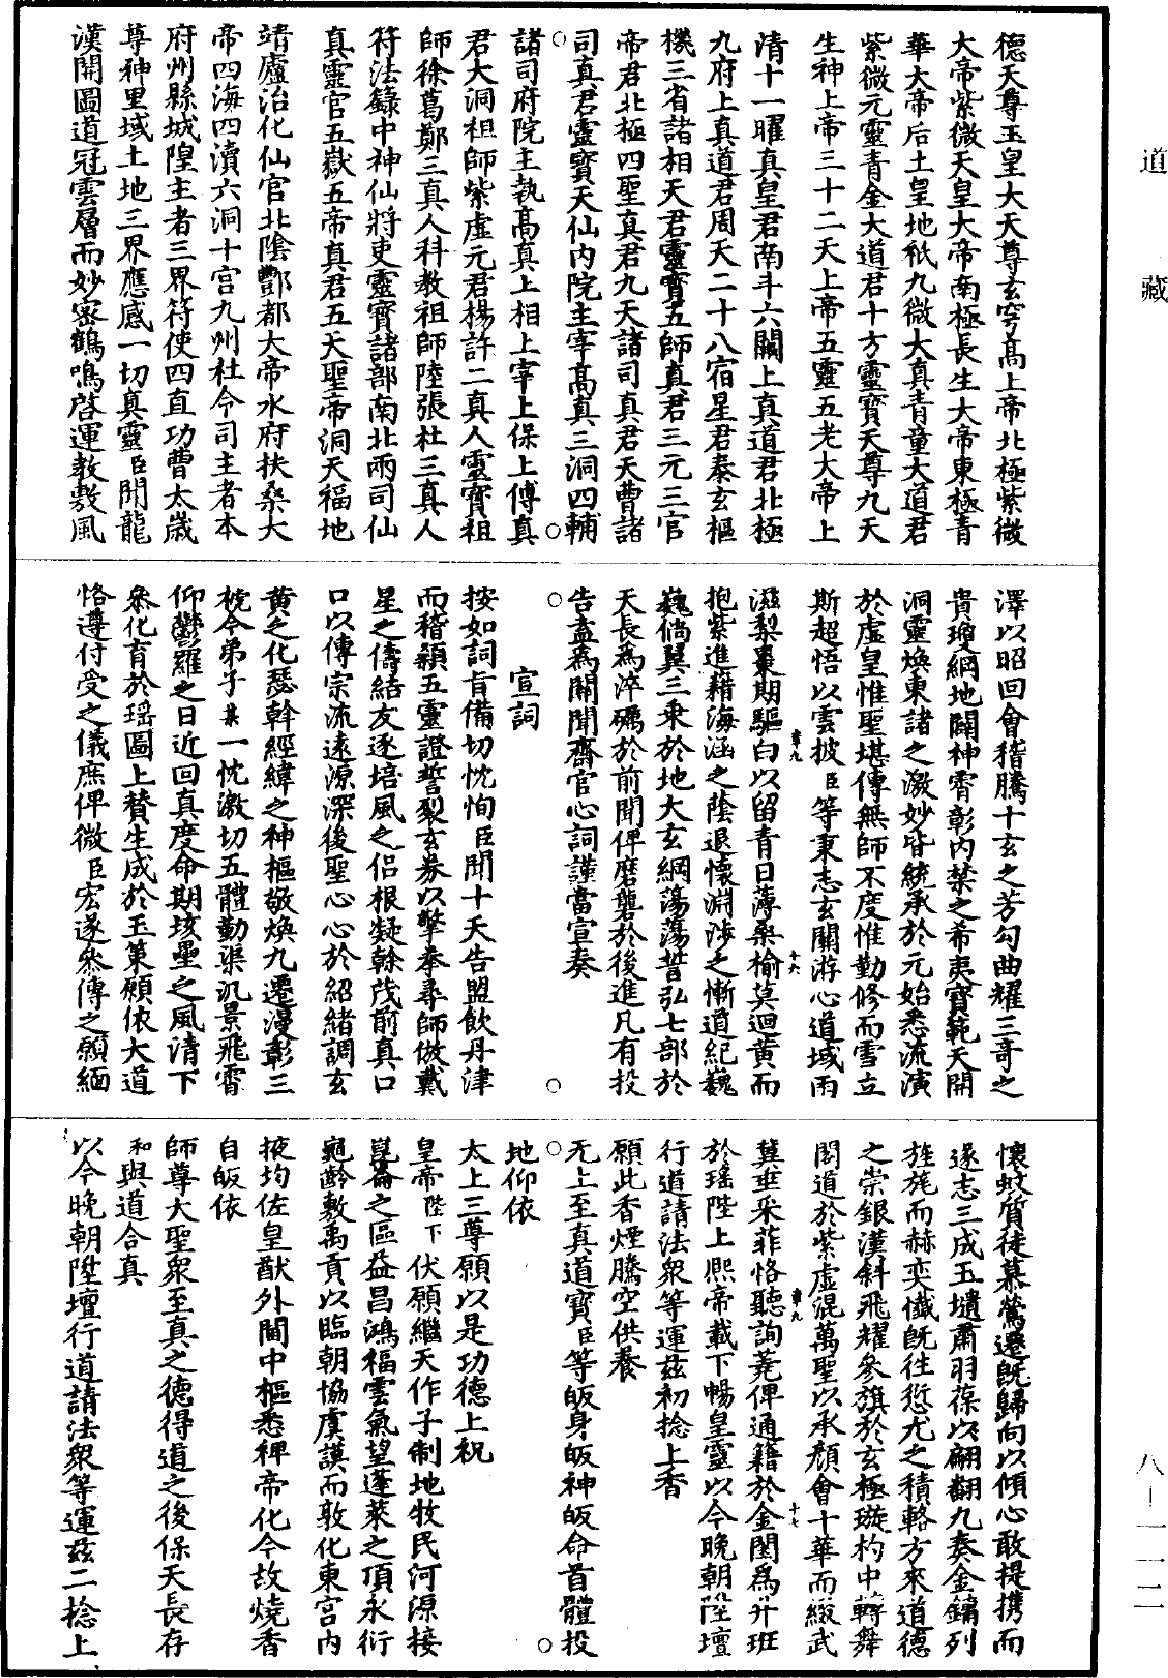 道藏
八—一一二
德天尊玉皇大天尊玄穹高上帝北極紫微
大帝紫微天皇大帝南極長生大帝東極青
華大帝后土皇地祇九微大真青童大道君
紫微元靈青金大道君十方靈寶天尊九天
生神上帝三十二天上帝五靈五老大帝上
清十一曜真皇君南斗六闕上真道君北極
九府上真道君周天二十八宿星君泰玄樞
機三省諸相天君靈寶五師真君三元三官
帝君北極四聖真君九天諸司真君天曹諸
司真君靈寶天仙內院主宰高真三洞四輔
諸司府院主執高真上相上宰上保上傅真
君大洞祖師紫虛元君楊許二真人靈寶祖
師徐葛鄭三真人科教祖師陸張杜三真人
符法籙中神仙將吏靈寶諸部南北兩司仙
真靈官五嶽五帝真君五天聖帝洞天福地
靖廬治化仙官北陰酆都大帝水府扶桑大
帝四海四瀆六洞十宮九州社令司主者本
府州縣城隍主者三界符使四直功曹太歲
尊神里域土地三界應感一切真靈臣聞龍
漢開圖道冠雲層而妙密鶴鳴啓運教敷風
澤以昭回會稽騰十玄之芳勾曲耀三奇之
貴瓊綱地闢神霄彰內禁之希夷寶範天開
洞靈煥東諸之激妙皆統承於元始悉流演
於虛皇惟聖堪傳無師不度惟勤修而雪立
斯超悟以雲披臣等秉志玄關游心道域雨
滋梨棗期驅白以留青日薄桑榆莫迴黃而
抱紫進藉海涵之蔭退懷淵陟之慚道紀巍
巍倘翼三乘於地大玄綱蕩蕩誓弘七部於
天長為淬礪於前聞俾磨礱於後進凡有投
告盍為關聞齋官心詞謹當宣奏
宣詞
按如詞旨備切忱恂臣聞十天告盟飲丹津
而稽顙五靈證誓裂玄券以擎拳尋師倣戴
星之儔結友逐培風之侶根凝榦茂前真口
口以傳宗流遠源深後聖心心於紹緒調玄
黃之化瑟斡經緯之神樞敬煥九遷漫彰三
梲今弟子某一忱激切五體勤渠汎景飛霄
仰鬱羅之日近回真度命期垓壘之風清下
叅化育於瑶圖上贊生成於玉策願依大道
恪遵付受之儀庶俾微臣宏遂叅傳之願緬
懷蚊質徒慕鶯遷既歸向以傾心敢提携而
遂志三成玉壝肅羽葆以翩翻九奏金鏞列
旌旄而赫奕懺既往愆尤之積輅方來道德
之崇銀漢斜飛耀參旗於玄極璇杓中轉舞
閣道於紫虛混萬聖以承顏會十華而綴武
冀垂采菲恪聽詢蕘俾通籍於金閨為升班
於瑶陛上熙帝載下暢皇靈以今晚朝陞壇
行道請法衆等運茲初捻上香
願此香煙騰空供養
无上至真道寶臣等皈身皈神皈命首體投
地仰依
太上三尊願以是功德上祝
皇帝陛下伏願繼天作子制地牧民河源接
崑崙之區益昌鴻福雲氣望蓬萊之頂永衍
龜齡敷禹貢以臨朝協虞謨而敦化東宮內
掖均佐皇猷外閫中樞悉裨帝化今故燒香
自皈依
師尊大聖衆至真之德得道之後保天長存
和與道合真
以今晚朝陞壇行道請法衆等運茲二捻上
章九
十六
章九
十七